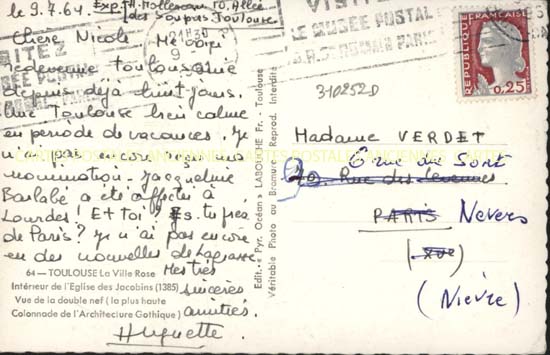 le 9.7.64. Exp. H. Mollereau 10, Allée
des Soupirs Toulouse
Chère Nicole Me voici
redevenue toulousaine
depuis déjà huit jours.
Une Toulouse bien calme
en période de vacances. Je
n'ai pas encore reçu ma
nomination. Jacqueline
Barlabé a été affectée à
Lourdes! Et toi? Es-tu près
de Paris? Je n'ai pas encore
eu des nouvelles de Lagrasse
Mes très
sincères
amitiés.
Huguette.
64 — TOULOUSE La Ville Rose
Intérieur de l'Eglise des Jacobins (1385)
Vue de la double nef (la plus haute
Colonnade de l'Architecture Gothique)
Edit. Pyr. Océan LABOUCHE Fr. - Toulouse
Véritable Photo au Bromure Reprod. Interdite
VISITEZ
LE MUSÉE POSTAL
PARIS
REPUBLIQUE FRANÇAISE
0,25
310252D
Madame VERDET
6 rue du Sort
70. Rue des Cévennes
PARIS Nevers
(XVe)
(Nièvre)
CARTES POSTALES ANCIENNES